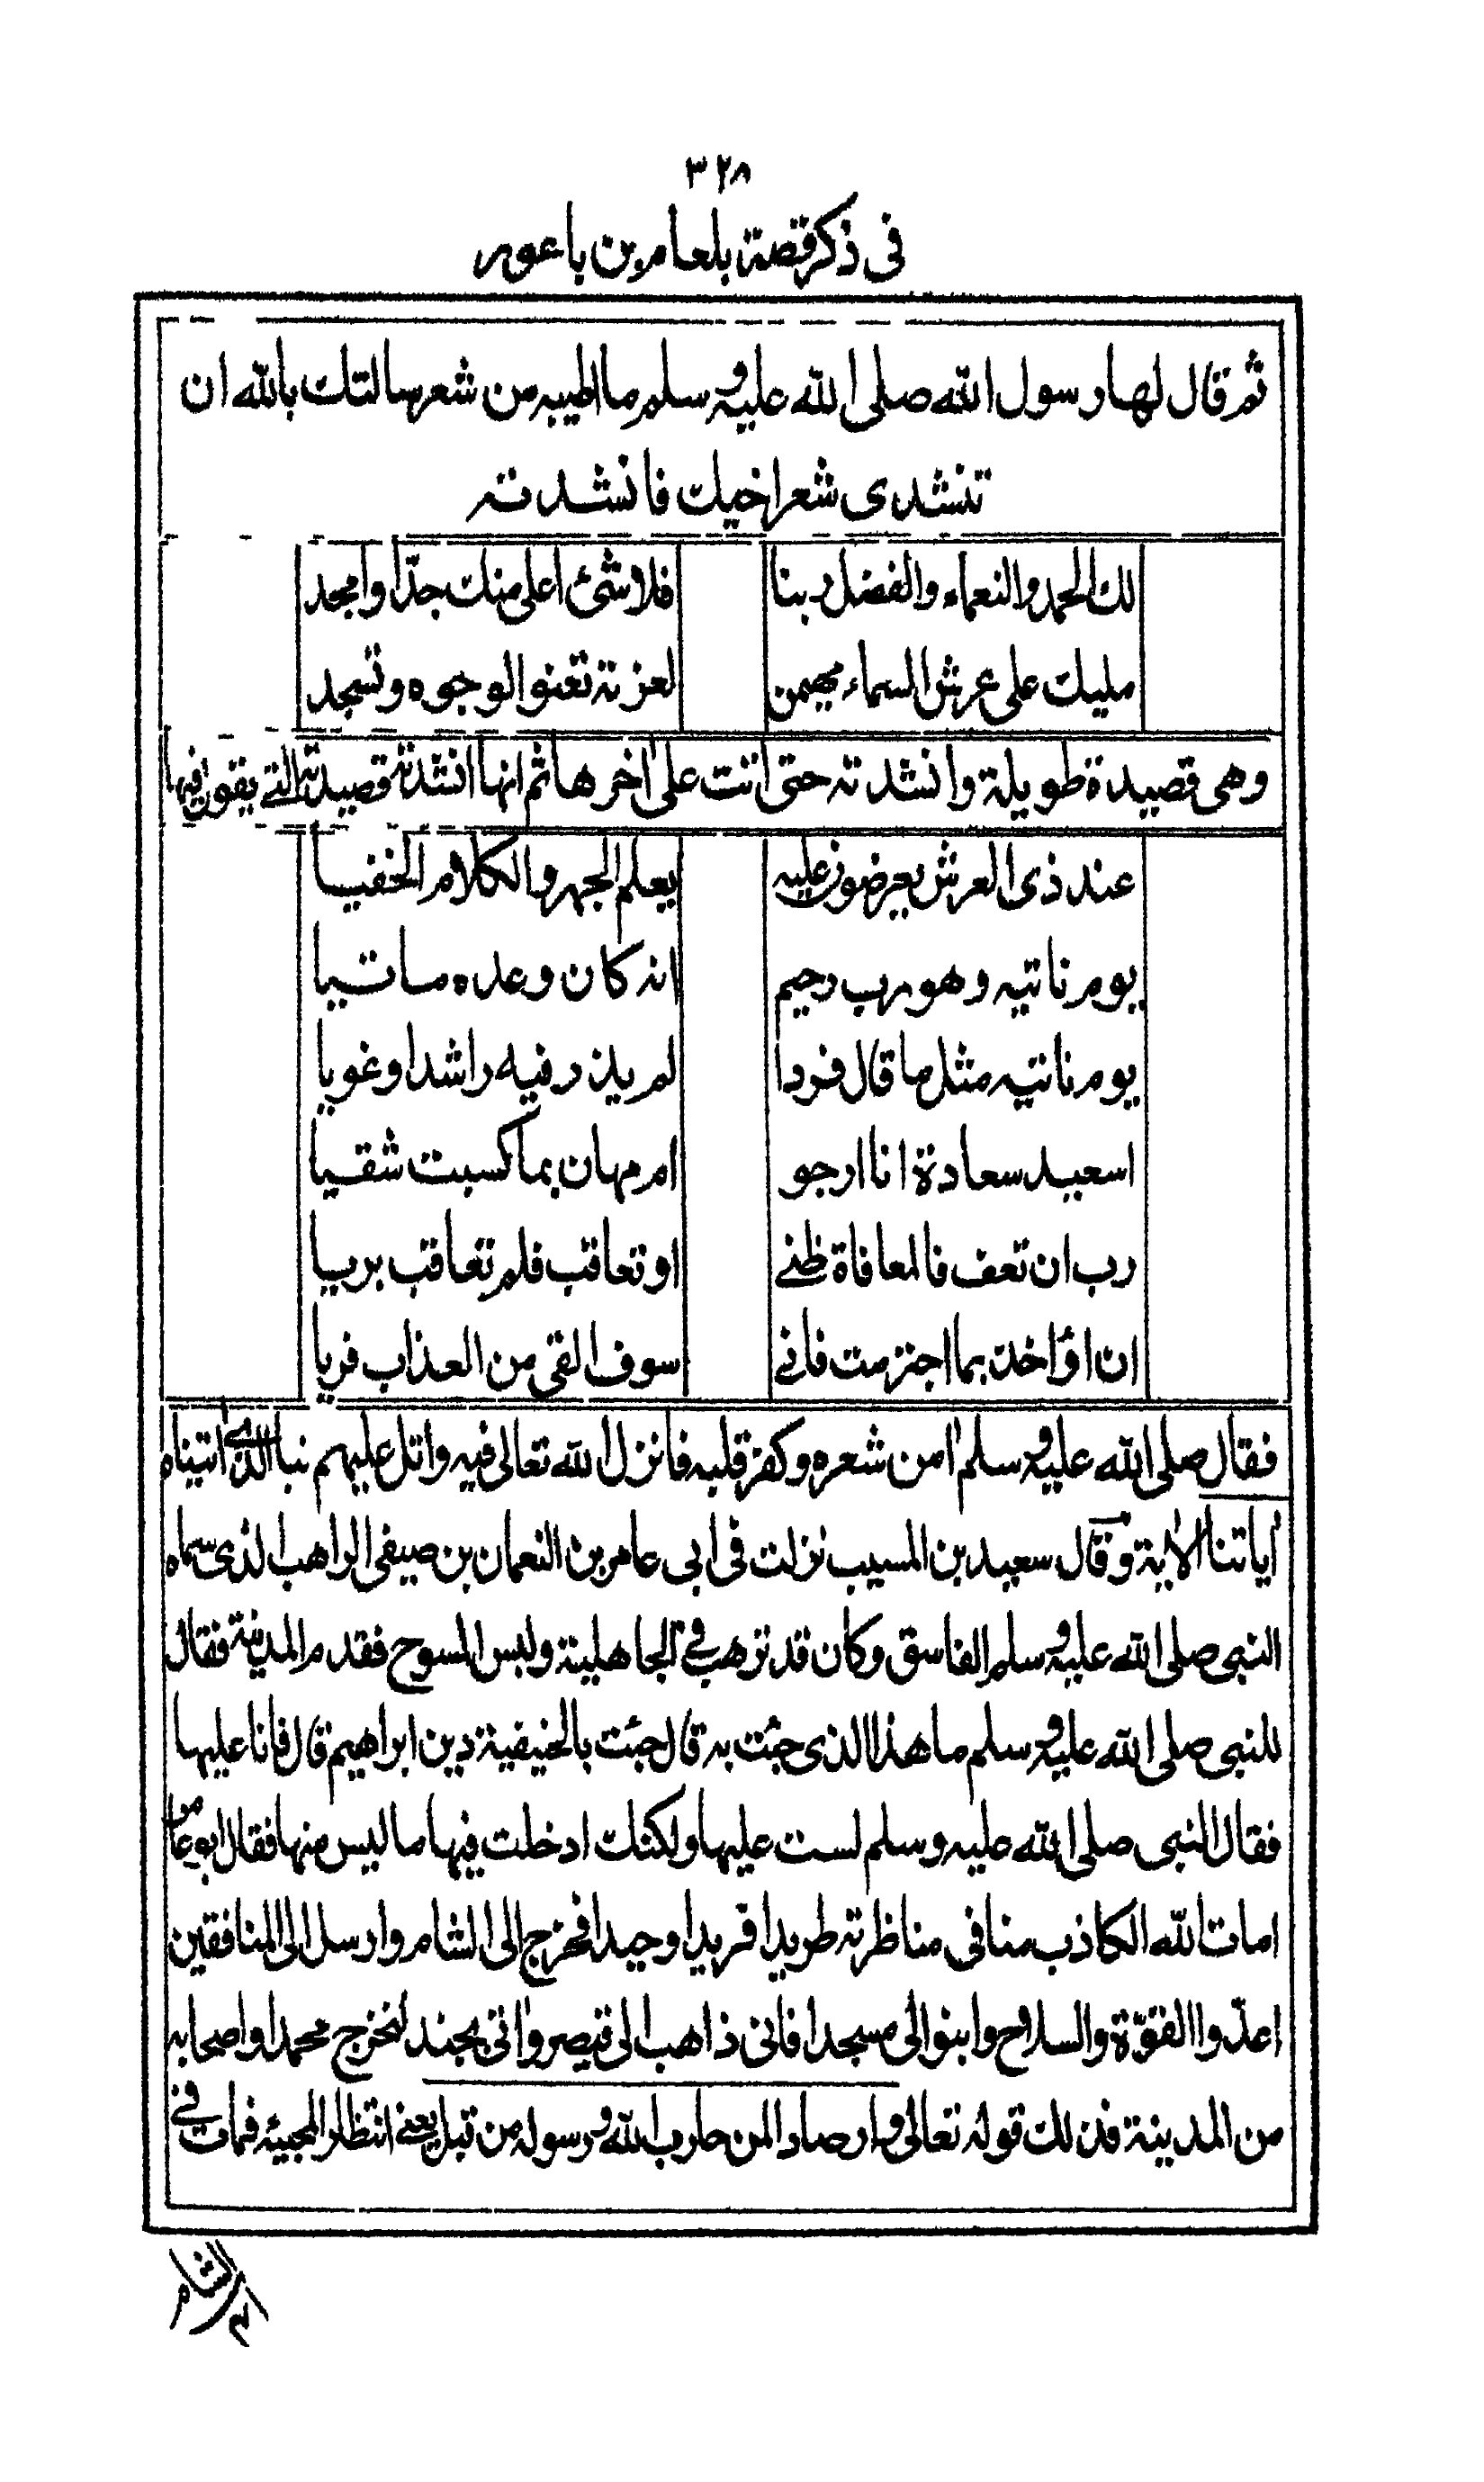 ٣٢٨
فى ذكر قصة بلعام بن باعور
ثم قال لها رسول الله صلى الله عليه وسلم ما اطيبه من شعر سالتك بالله ان
تنشدى شعر اخيك فانشدته
لك الحمد والنعماء والفضل ربنا فلا شئ اعلى منك جدّا وامجد
مليك على عرش السماء مهيمن لعزته تعنو الوجوه وتسجد
وهى قصيدة طويلة وانشدته حتى اتت على اخرها ثم انها انشدته قصيدته التى يقول فيها
عند ذى العرش يعرضون عليه يعلم الجهر والكلام الخفيا
يوم ناتيه وهو رب رحيم انه كان وعده ماتيا
يوم ناتيه مثل ما قال فردا لم يذر فيه راشدا وغويا
اسعيد سعادة انا ارجو ام مهان بما كسبت شقيا
رب ان تعف فالمعافاة ظنى او تعاقب فلم تعاقب بريا
ان اؤاخذ بما اجترمت فانى سوف القى من العذاب فريا
فقال صلى الله عليه وسلم امن شعره وكفر قلبه فانزل الله تعالى فيه واتل عليهم نبا الذى اتيناه
اياتنا الاية وقال سعيد بن المسيب نزلت فى ابى عامر بن النعمان بن صيفى الراهب الذى سماه
النبى صلى الله عليه وسلم الفاسق وكان قد ترهب فى الجاهلية ولبس المسوح فقدم المدينة فقال
للنبى صلى الله عليه وسلم ما هذا الذى جئت به قال جئت بالحنيفية دين ابراهيم قال فانا عليها
فقال النبى صلى الله عليه وسلم لست عليها ولكنك ادخلت فيها ما ليس منها فقال ابو عامر
امات الله الكاذب منا فى مناظرته طريدا فريدا وحيدا فخرج الى الشام وارسل الى المنافقين
اعدّوا القوّة والسلاح وابنوا لى مسجدا فانى ذاهب الى قيصر واتى بجند لنخرج محمدا واصحابه
من المدينة فذلك قوله تعالى وارصادا لمن حارب الله ورسوله من قبل يعنى انتظارا لمجيئه فمات فى
الشام